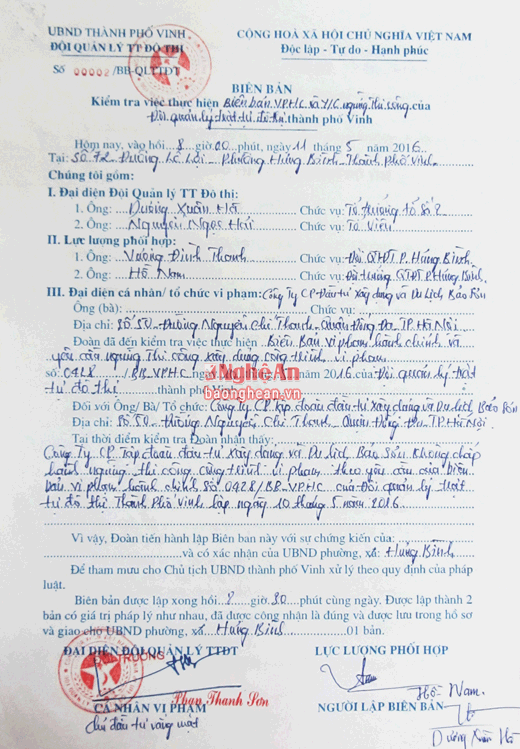 UBND THÀNH PHỐ VINH
ĐỘI QUẢN LÝ TT ĐÔ THỊ
Số 00002/BB-QLTTĐT
CỘNG HOÀ XÃ HỘI CHỦ NGHĨA VIỆT NAM
Độc lập - Tự do - Hạnh phúc
BIÊN BẢN
Kiểm tra việc thực hiện Biên bản VPHC và Y/C ngừng thi công của
Đội quản lý trật tự đô thị thành phố Vinh
Hôm nay, vào hồi 8 giờ 00 phút, ngày 11 tháng 5 năm 2016
Tại: Số 72 Đường Lê Lợi - Phường Hưng Bình - Thành Phố Vinh
Chúng tôi gồm:
I. Đại diện Đội Quản lý TT Đô thị:
1. Ông: Dương Xuân Hà Chức vụ: Tổ trưởng tổ số 2
2. Ông: Nguyễn Ngọc Hải Chức vụ: Tổ viên
II. Lực lượng phối hợp:
1. Ông: Vương Đình Thanh Chức vụ: Đội QTĐT P. Hưng Bình
2. Ông: Hồ Nam Chức vụ: Đội trưởng QTĐT P. Hưng Bình
III. Đại diện cá nhân/ tổ chức vi phạm: Công Ty CP Đầu tư Xây dựng và Du Lịch Bảo Sơn
Ông (bà): Chức vụ:
Địa chỉ: Số 50 - Đường Nguyễn Chí Thanh - Quận Đống Đa - TP. Hà Nội
Đoàn đã đến kiểm tra việc thực hiện Biên Bản vi phạm hành chính và
yêu cầu ngừng thi công xây dựng công trình vi phạm
số 0428 /BB-VPHC 5/2016 của Đội quản lý trật
tự đô thị thành phố Vinh
Nghệ An
baonghean.vn
Đối với Ông/ Bà/ Tổ chức: Công Ty CP Tập đoàn đầu tư xây dựng và Du lịch Bảo Sơn
Địa chỉ: Số 50 - Đường Nguyễn Chí Thanh - Quận Đống Đa TP. Hà Nội
Tại thời điểm kiểm tra Đoàn nhận thấy:
Công Ty CP Tập đoàn đầu tư xây dựng và Du lịch Bảo Sơn không chấp
hành ngừng thi công công trình vi phạm theo yêu cầu của Biên
bản vi phạm hành chính số 0428/BB-VPHC của Đội quản lý trật
tự đô thị Thành Phố Vinh lập ngày 10 tháng 5 năm 2016
Vì vậy, Đoàn tiến hành lập Biên bản này với sự chứng kiến của:
và có xác nhận của UBND phường, xã: Hưng Bình
Để tham mưu cho Chủ tịch UBND thành phố Vinh xử lý theo quy định của pháp
luật.
Biên bản được lập xong hồi 8 giờ 30 phút cùng ngày. Được lập thành 2
bản có giá trị pháp lý như nhau, đã được công nhận là đúng và được lưu trong hồ sơ
và giao cho UBND phường, xã Hưng Bình 01 bản.
ĐẠI DIỆN ĐỘI QUẢN LÝ TTĐT
LỰC LƯỢNG PHỐI HỢP
ĐỘI TRƯỞNG
Phan Thanh Sơn
Hồ Nam
CÁ NHÂN VI PHẠM
NGƯỜI LẬP BIÊN BẢN
Chủ đầu tư vắng mặt
Dương Xuân Hà